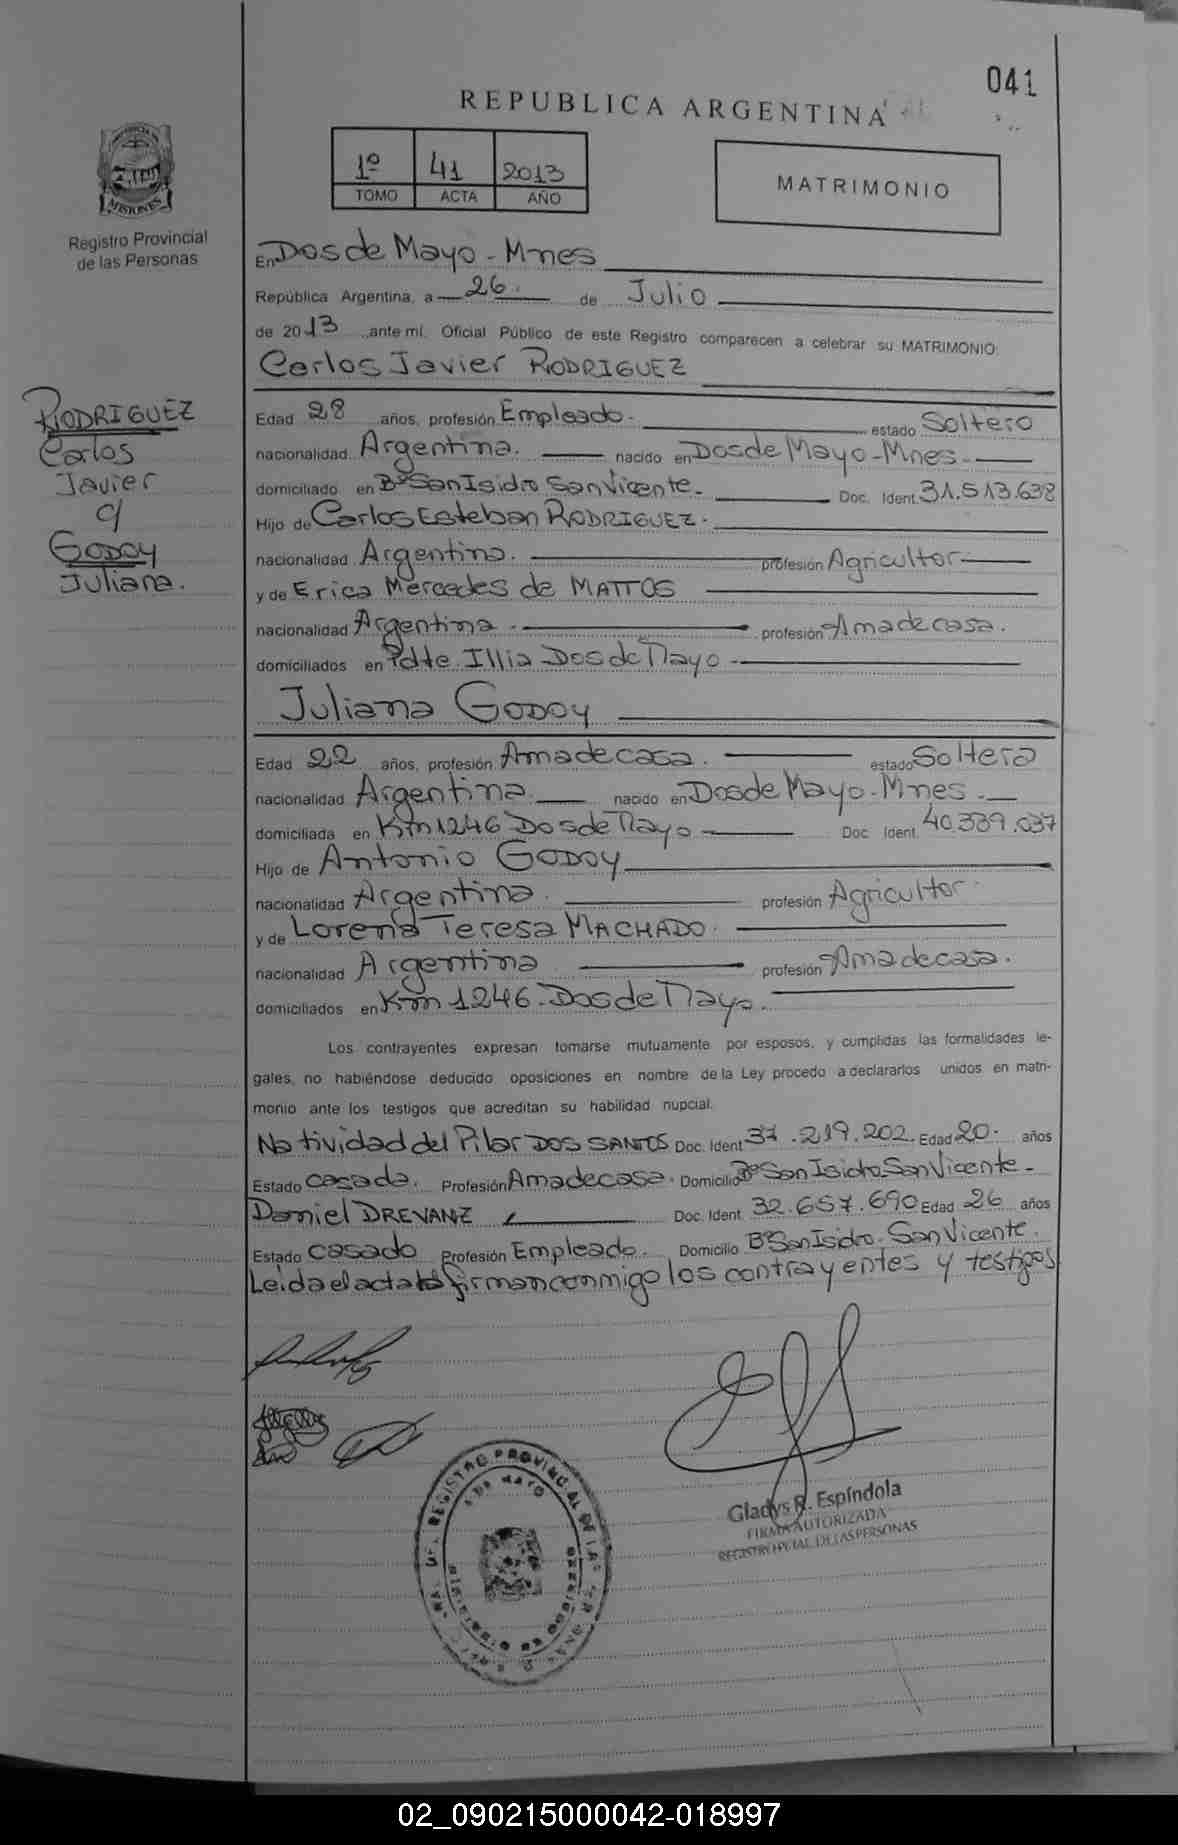 041
REPUBLICA ARGENTINA
1º 41 2013
TOMO ACTA AÑO
MATRIMONIO
MISIONES
Registro Provincial
de las Personas
RODRIGUEZ
Carlos
Javier
c/
GODOY
Juliana.
En Dos de Mayo - Mnes
República Argentina, a 26. de Julio
de 2013 ante mí, Oficial Público de este Registro comparecen a celebrar su MATRIMONIO:
Carlos Javier RODRIGUEZ
Edad 28 años, profesión Empleado. estado Soltero
nacionalidad Argentina. nacido en Dos de Mayo - Mnes.
domiciliado en Bº San Isidro San Vicente. Doc. Ident. 31.513.638
Hijo de Carlos Esteban RODRIGUEZ.
nacionalidad Argentina. profesión Agricultor
y de Erica Mercedes de MATTOS
nacionalidad Argentina. profesión Ama de casa.
domiciliados en Pdte. Illia Dos de Mayo
Juliana GODOY
Edad 22 años, profesión Ama de casa. estado Soltera
nacionalidad Argentina. nacido en Dos de Mayo - Mnes.
domiciliada en Km 1246 Dos de Mayo Doc. Ident. 40.339.037
Hijo de Antonio GODOY
nacionalidad Argentina. profesión Agricultor.
y de Lorena Teresa MACHADO.
nacionalidad Argentina profesión Ama de casa.
domiciliados en Km 1246. Dos de Mayo.
Los contrayentes expresan tomarse mutuamente por esposos, y cumplidas las formalidades le-
gales, no habiéndose deducido oposiciones en nombre de la Ley procedo a declararlos unidos en matri-
monio ante los testigos que acreditan su habilidad nupcial.
Natividad del Pilar DOS SANTOS Doc. Ident 37.219.202. Edad 20. años
Estado casada. Profesión Ama de casa. Domicilio Bº San Isidro San Vicente.
Daniel DREVANZ Doc. Ident. 32.657.690 Edad 26 años
Estado casado Profesión Empleado. Domicilio Bº San Isidro. San Vicente.
Leida el acta la firman conmigo los contrayentes y testigos
Gladys R. Espíndola
FIRMA AUTORIZADA
REGISTRO PCIAL. DE LAS PERSONAS
REGISTRO PROVINCIAL DE LAS PERSONAS
2 DE MAYO
02_090215000042-018997